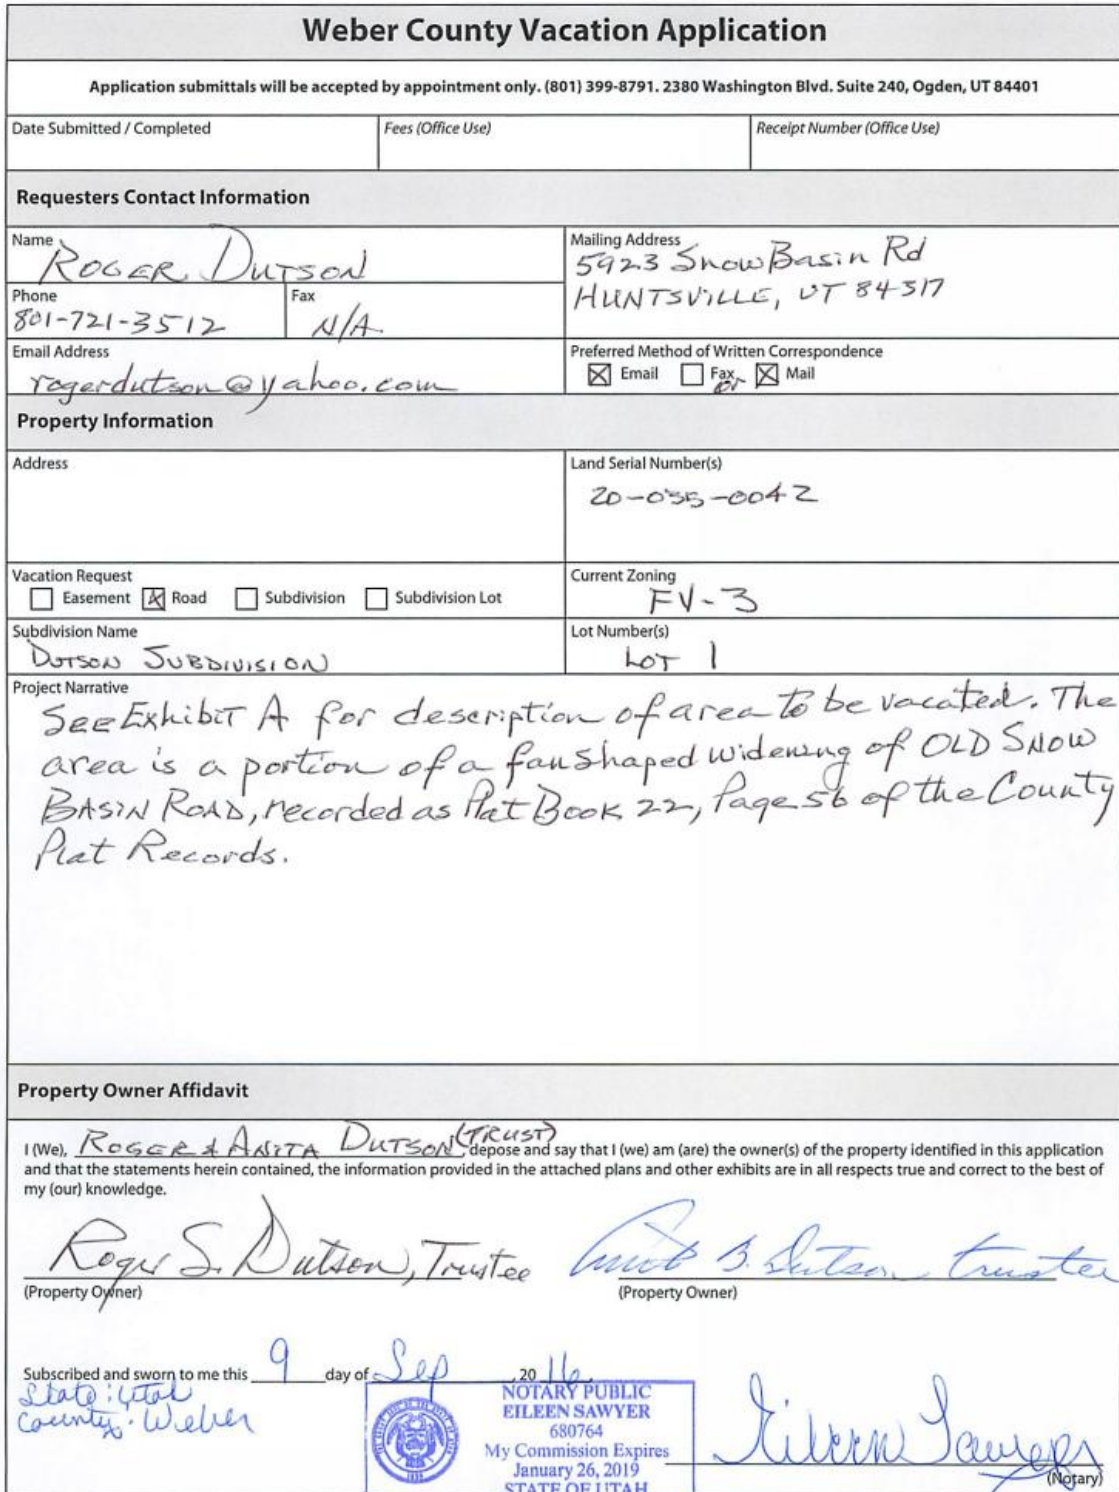 Weber County Vacation Application
Application submittals will be accepted by appointment only. (801) 399-8791. 2380 Washington Blvd. Suite 240, Ogden, UT 84401
Date Submitted / Completed
Fees (Office Use)
Receipt Number (Office Use)
Requesters Contact Information
Name
ROGER DUTSON
Mailing Address
5923 SnowBasin Rd
HUNTSVILLE, UT 84317
Phone
801-721-3512
Fax
N/A
Email Address
rogerdutson@yahoo.com
Preferred Method of Written Correspondence
Email Fax or Mail
Property Information
Address
Land Serial Number(s)
20-035-0042
Vacation Request
Easement Road Subdivision Subdivision Lot
Current Zoning
FV-3
Subdivision Name
DUTSON SUBDIVISION
Lot Number(s)
LOT 1
Project Narrative
SEE EXHIBIT A for description of area to be vacated. The
area is a portion of a fan shaped widening of OLD SNOW
BASIN ROAD, recorded as Plat Book 22, Page 56 of the County
Plat Records.
Property Owner Affidavit
I (We), ROGER & ANITA DUTSON (TRUST), depose and say that I (we) am (are) the owner(s) of the property identified in this application
and that the statements herein contained, the information provided in the attached plans and other exhibits are in all respects true and correct to the best of
my (our) knowledge.
Roger S. Dutson, Trustee
B. Dutson trustee
(Property Owner)
(Property Owner)
Subscribed and sworn to me this 9 day of Sep, 20 16.
State: Utah
County: Weber
NOTARY PUBLIC
EILEEN SAWYER
680764
My Commission Expires
January 26, 2019
STATE OF UTAH
Eileen Sawyer
(Notary)